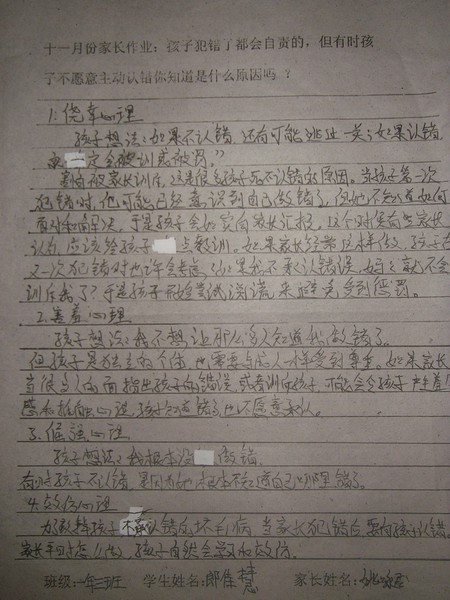 十一月份家长作业：孩子犯错了都会自责的，但有时孩
子不愿意主动认错你知道是什么原因吗？
1.侥幸心理
孩子想法：如果不认错，还有可能逃过一关；如果认错，
一定会被训或被罚。”
害怕被家长训斥，这是很多孩子死不认错的原因。当孩子第一次
犯错时，他可能已经意识到自己做错了，但他不知道如何
面对和解决，于是孩子会如实向家长汇报。这个时候有些家长
认为，应该给孩子 点教训。如果家长经常这样做，孩子在
又一次犯错时也许会去 如果我不承认错误，妈妈就不会
训斥我了？于是孩子开始尝试说谎，来避免受到惩罚。
2.害羞心理
孩子想法：我不想让那么多人知道我做错了。
但孩子是独立的个体，也需要与成人一样受到尊重，如果家长
当很多人面前指出孩子的错误或者训斥孩子，可能会令孩子产生羞
感和抵触心理，孩子知道错了也不愿意承认。
3.倔强心理
孩子想法：我根本没 做错。
有时孩子不认错，是因为他根本不知道自己哪里错了。
4.效仿心理
为教育孩子不承认错的坏毛病，当家长犯错后要向孩子认错，
家长平时怎么做，孩子自然会学和效仿。
班级：一年三班 学生姓名：郎佳慧 家长姓名：